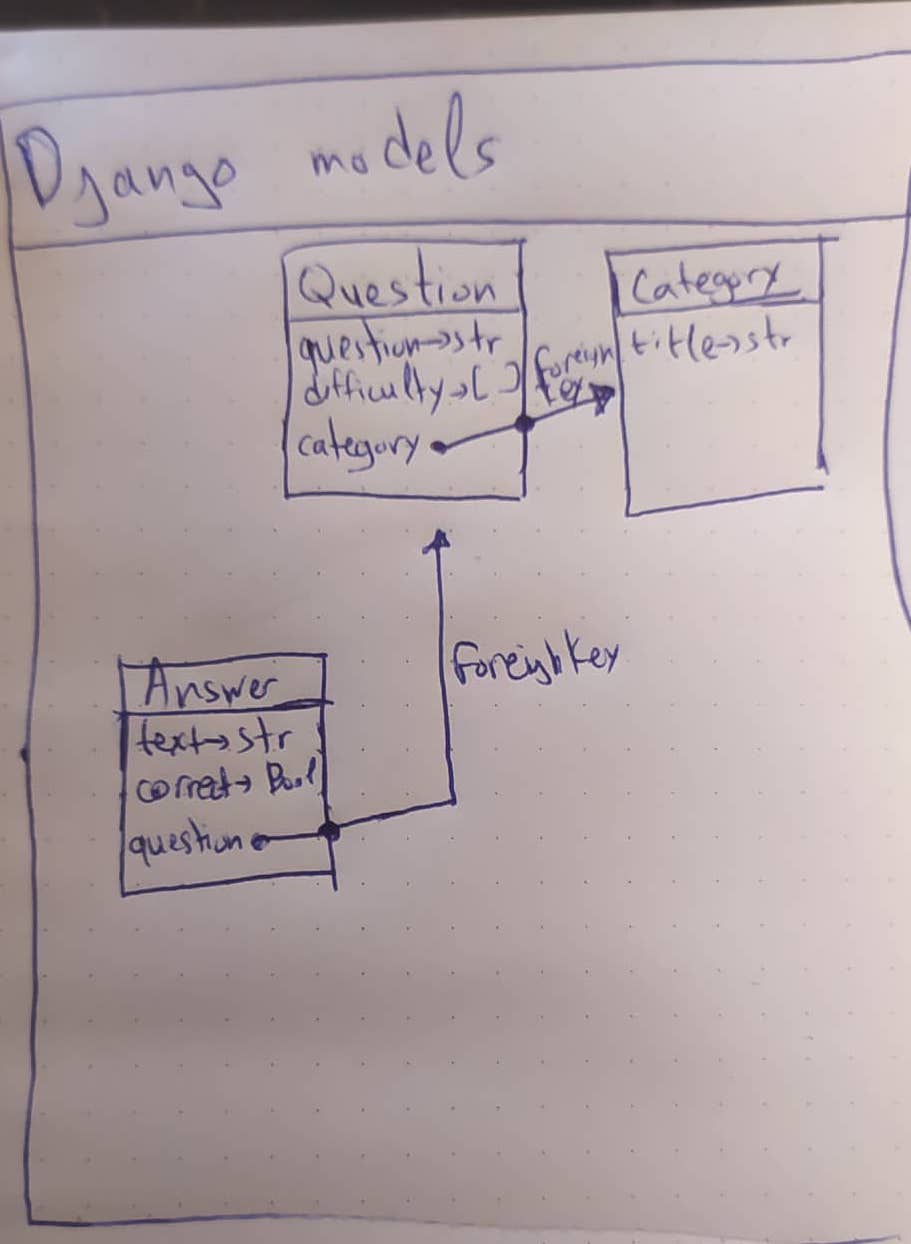 Django models
Question
question→str
difficulty→[ ]
category
Foreign
key
Category
title→str
Foreign key
Answer
text→str
correct→ Bool
question